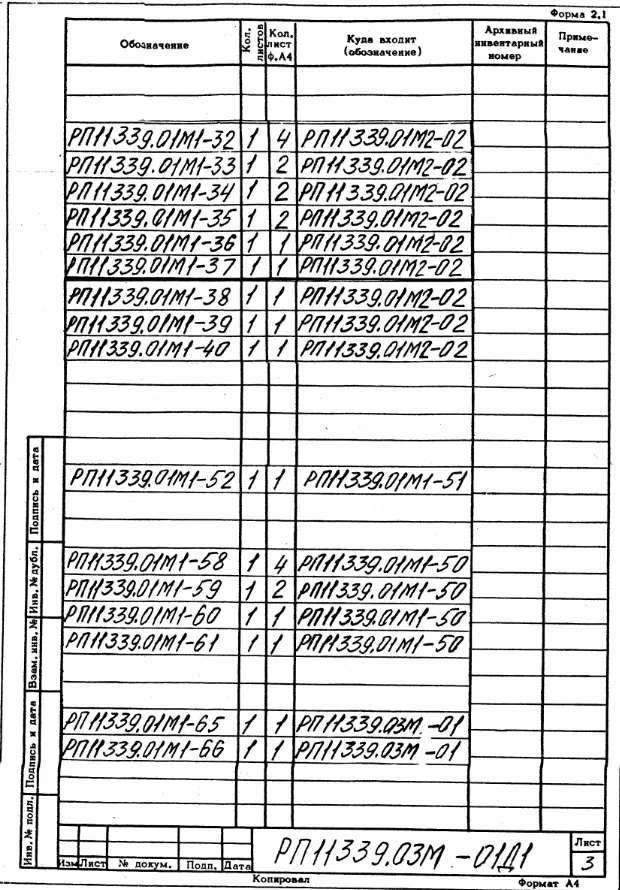 Форма 2.1
Обозначение Кол. листов Кол. лист ф.А4 Куда входит (обозначение) Архивный инвентарный номер Примечание
РП11339.01М1-32 1 4 РП11339.01М2-02
РП11339.01М1-33 1 2 РП11339.01М2-02
РП11339.01М1-34 1 2 РП11339.01М2-02
РП11339.01М1-35 1 2 РП11339.01М2-02
РП11339.01М1-36 1 1 РП11339.01М2-02
РП11339.01М1-37 1 1 РП11339.01М2-02
РП11339.01М1-38 1 1 РП11339.01М2-02
РП11339.01М1-39 1 1 РП11339.01М2-02
РП11339.01М1-40 1 1 РП11339.01М2-02
РП11339.01М1-52 1 1 РП11339.01М1-51
РП11339.01М1-58 1 4 РП11339.01М1-50
РП11339.01М1-59 1 2 РП11339.01М1-50
РП11339.01М1-60 1 1 РП11339.01М1-50
РП11339.01М1-61 1 1 РП11339.01М1-50
РП11339.01М1-65 1 1 РП11339.03М -01
РП11339.01М1-66 1 1 РП11339.03М -01
Подпись и дата
Инв. № дубл.
Взам. инв. №
Подпись и дата
Инв. № подл.
Изм Лист № докум. Подп. Дата
РП11339.03М -01Д1
Лист
3
Копировал Формат А4